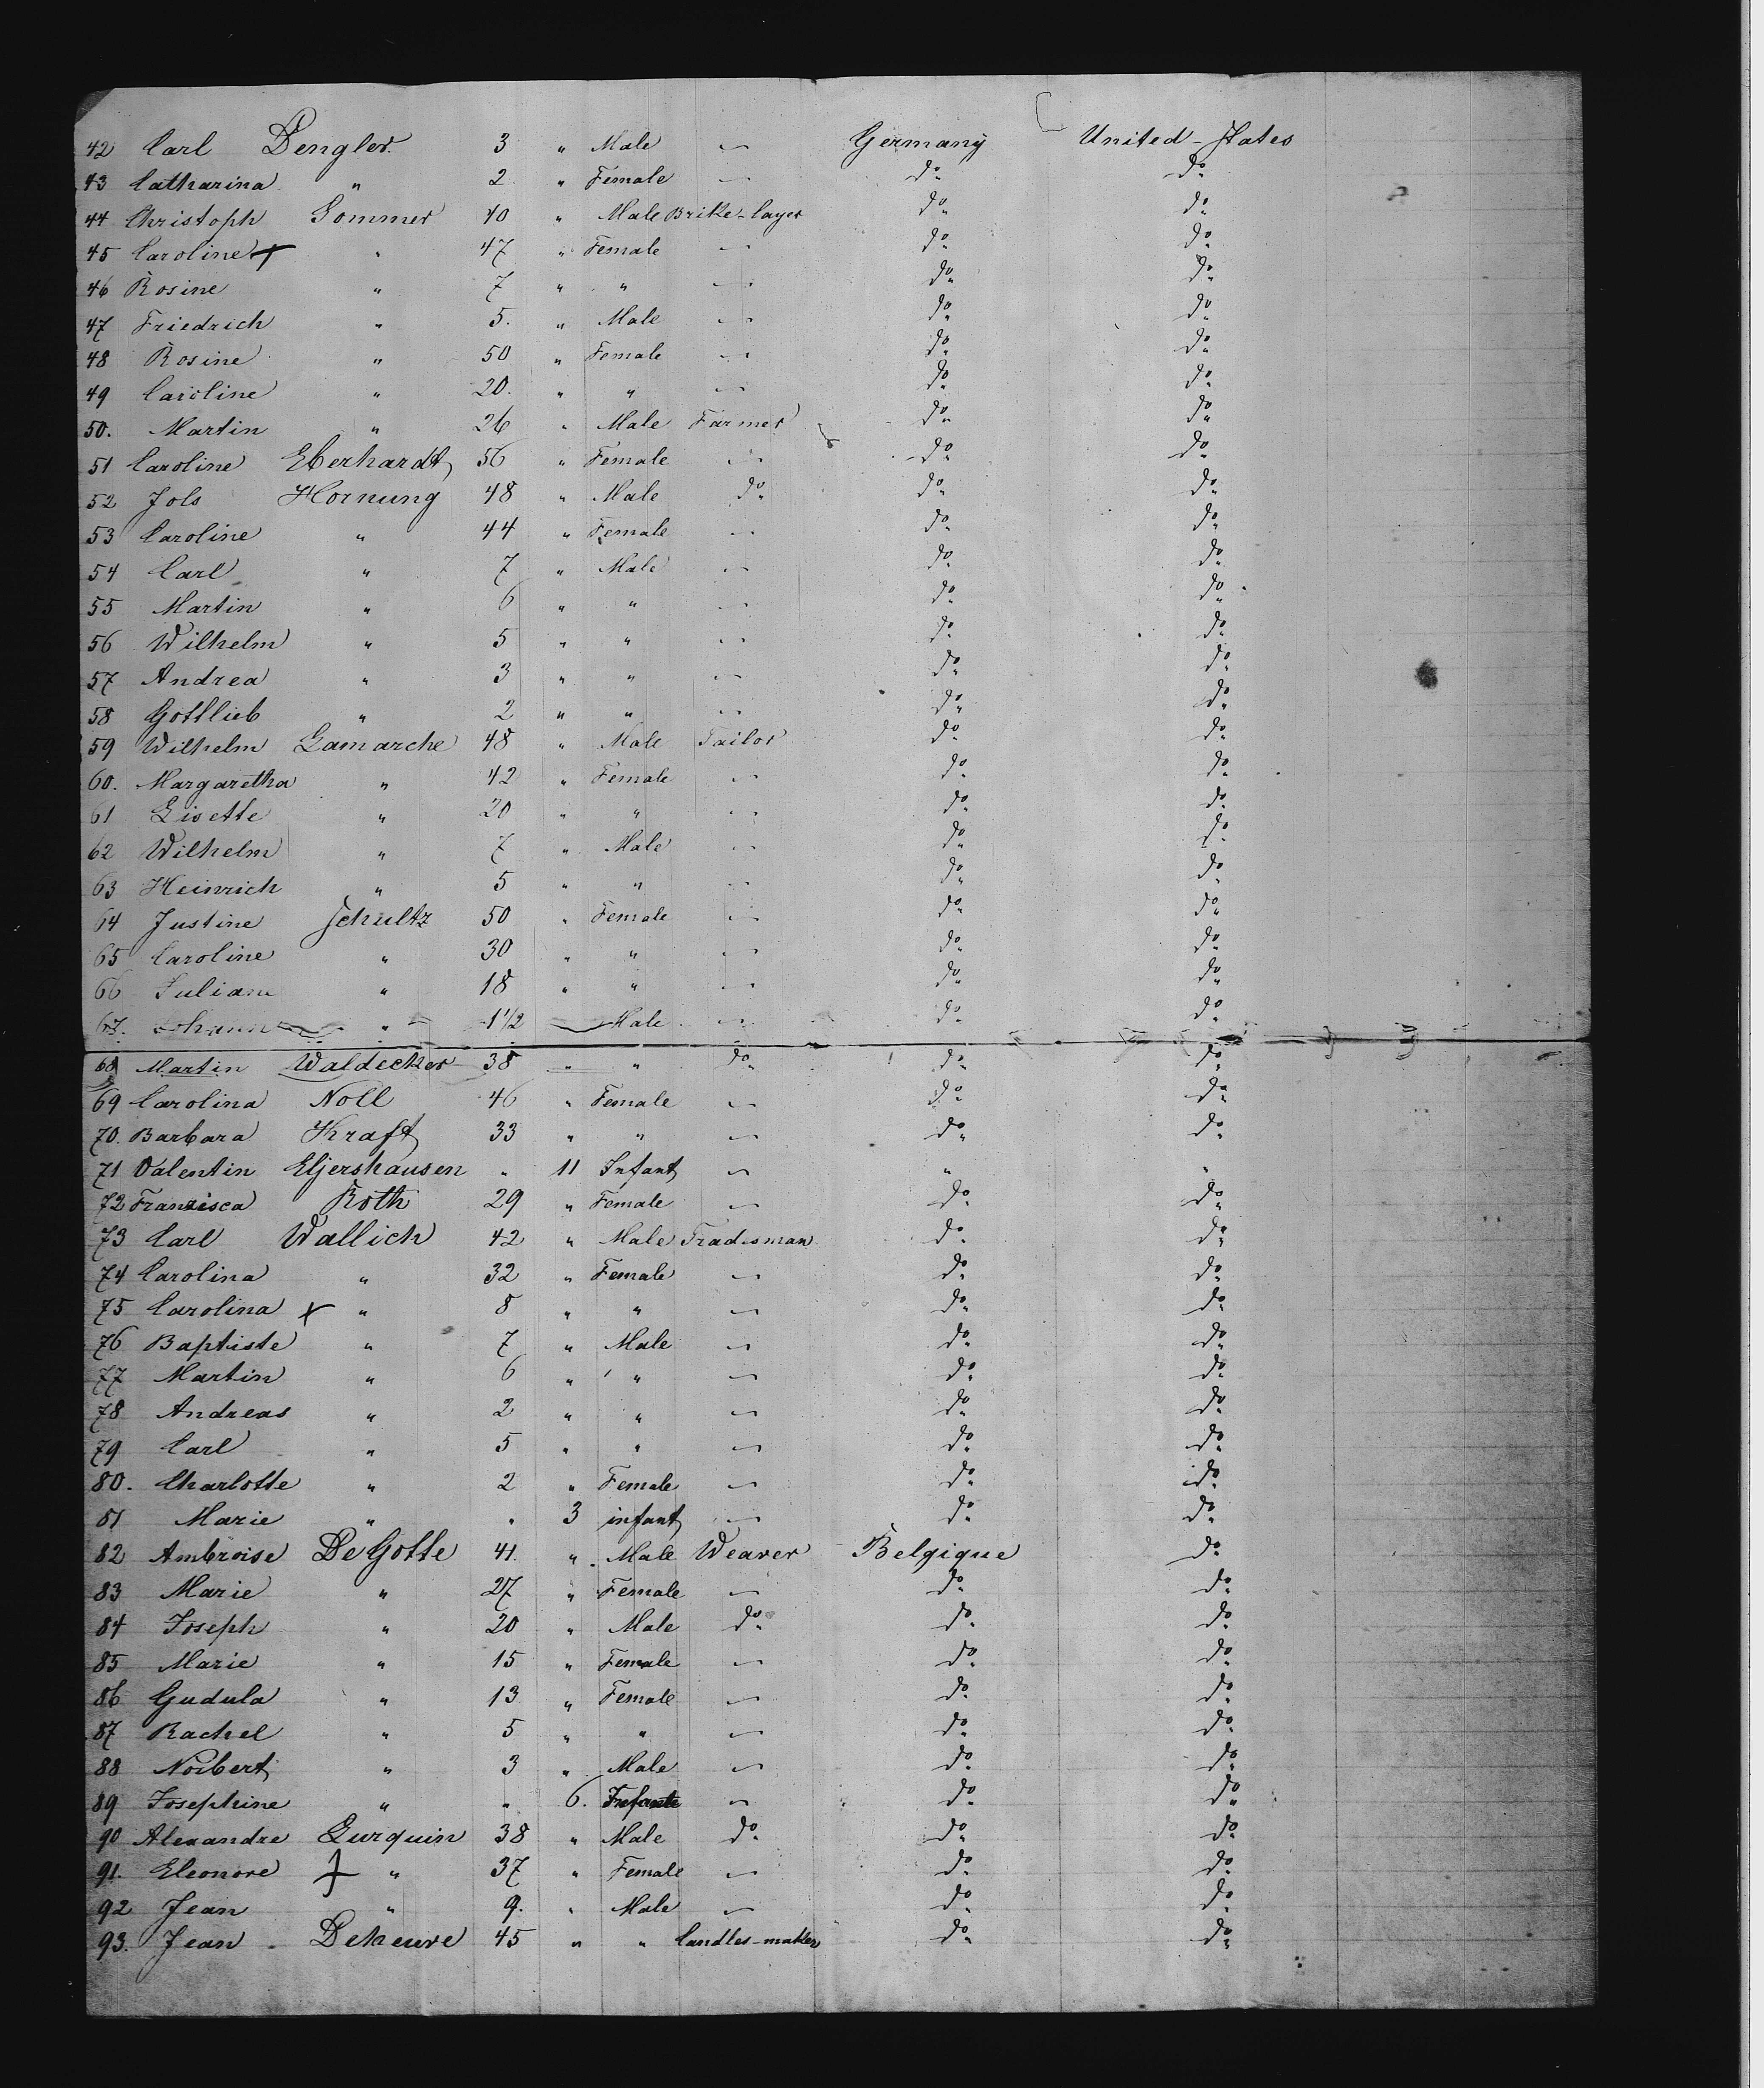 42 Carl Dengler 3 " Male — Germany United-States
43 Catharina " 2 " Female — do do
44 Christoph Sommer 40 " Male Brike-layer do do
45 Caroline " 47 " Female — do do
46 Rosine " 7 " " — do do
47 Friedrich " 5. " Male — do do
48 Rosine " 50 " Female — do do
49 Caroline " 20. " " — do do
50. Martin " 26 " Male Farmer do do
51 Caroline Eberhardt 56 " Female — do do
52 Jols Hornung 48 " Male do do do
53 Caroline " 44 " Female — do do
54 Carl " 7 " Male — do do
55 Martin " 6 " " — do do
56 Wilhelm " 5 " " — do do
57 Andrea " 3 " " — do do
58 Gottlieb " 2 " " — do do
59 Wilhelm Lamarche 48 " Male Tailor do do
60. Margaretha " 42 " Female — do do
61 Lisette " 20 " " — do do
62 Wilhelm " 7 " Male — do do
63 Heinrich " 5 " " — do do
64 Justine Schultz 50 " Female — do do
65 Caroline " 30 " " — do do
66 Juliane " 18 " " — do do
67. Johann " 1 1/2 Male — do do
68 Martin Waldecker 38 " " do do do
69 Carolina Noll 46 " Female — do do
70. Barbara Kraft 33 " " — do do
71 Valentin " 11 Infant — " "
72 Franzisca Roth 29 " Female — do do
73 Carl Wallich 42 " Male Tradesman do do
74 Carolina " 32 " Female — do do
75 Carolina x " 8 " " — do do
76 Baptiste " 7 " Male — do do
77 Martin " 6 " " — do do
78 Andreas " 2 " " — do do
79 Carl " 5 " " — do do
80. Charlotte " 2 " Female — do do
81 Marie " " 3 infant — do do
82 Ambroise DeGotte 41. " Male Weaver Belgique do
83 Marie " 27 " Female — do do
84 Joseph " 20 " Male do do do
85 Marie " 15 " Female — do do
86 Gudula " 13 " Female — do do
87 Rachel " 5 " " — do do
88 Norbert " 3 " Male — do do
89 Josephine " " 6. Infante — do do
90 Alexandre Lurquin 38 " Male do do do
91. Eleonore " 37 " Female — do do
92 Jean " 9. " Male — do do
93. Jean Deheuve 45 " " Candles-maker do do